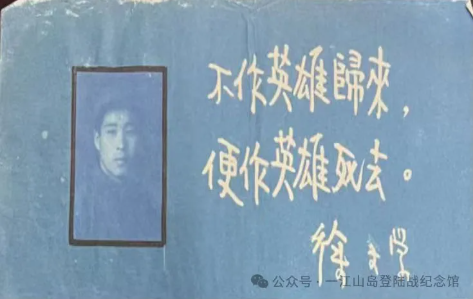 不作英雄歸來，
便作英雄死去。
徐
公众号·一江山岛登陆战纪念馆